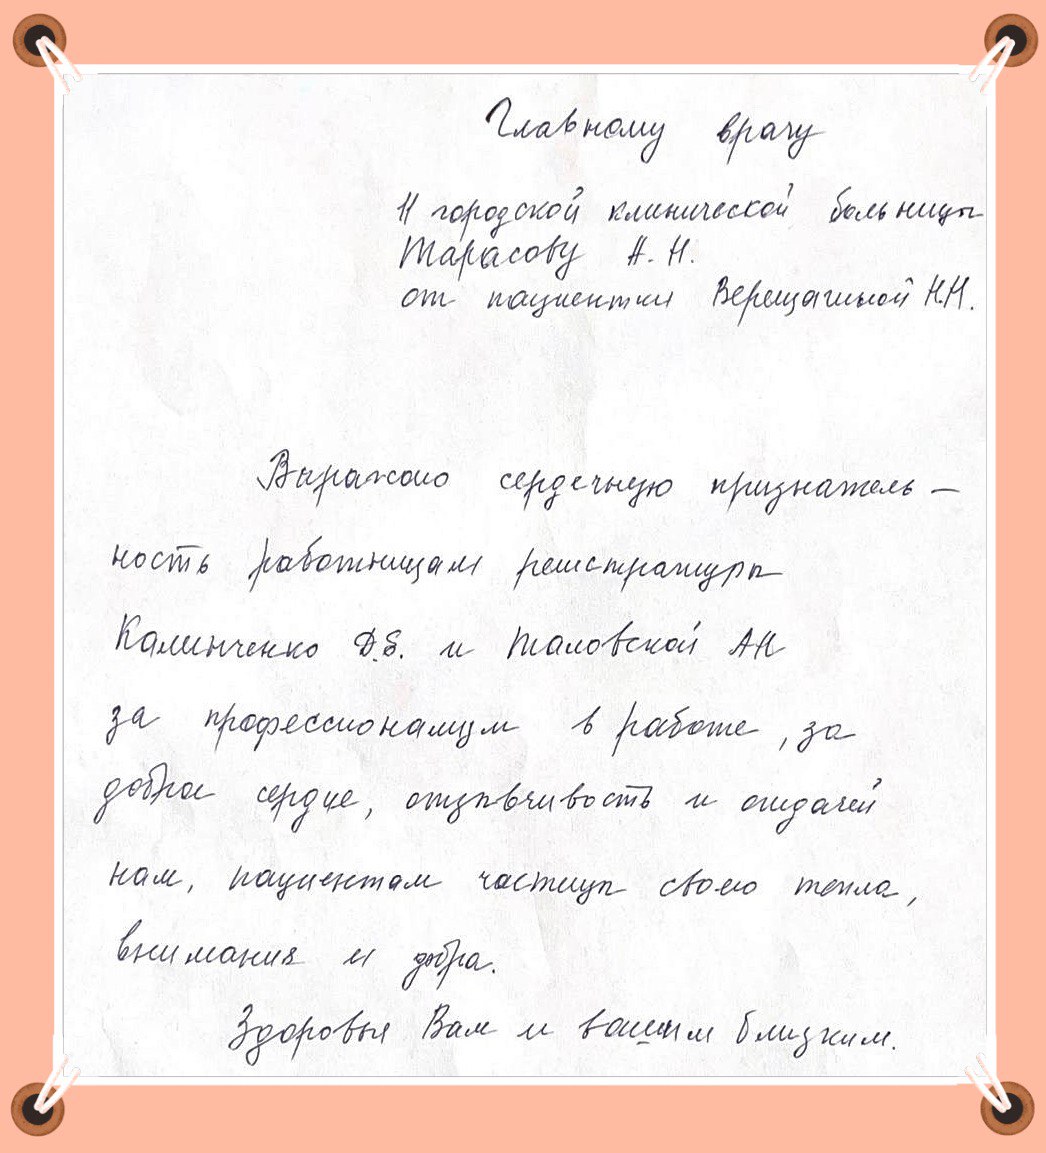 Главному врачу
11 городской клинической больницы
Тарасову А. Н.
от пациентки Верещагиной Н.Н.
Выражаю сердечную признатель-
ность работницам регистратуры
Калинченко Д.Б. и Таловской АН
за профессионализм в работе, за
доброе сердце, отзывчивость и отдачей
нам, пациентам частицы своего тепла,
внимания и добра.
Здоровья Вам и вашим близким.